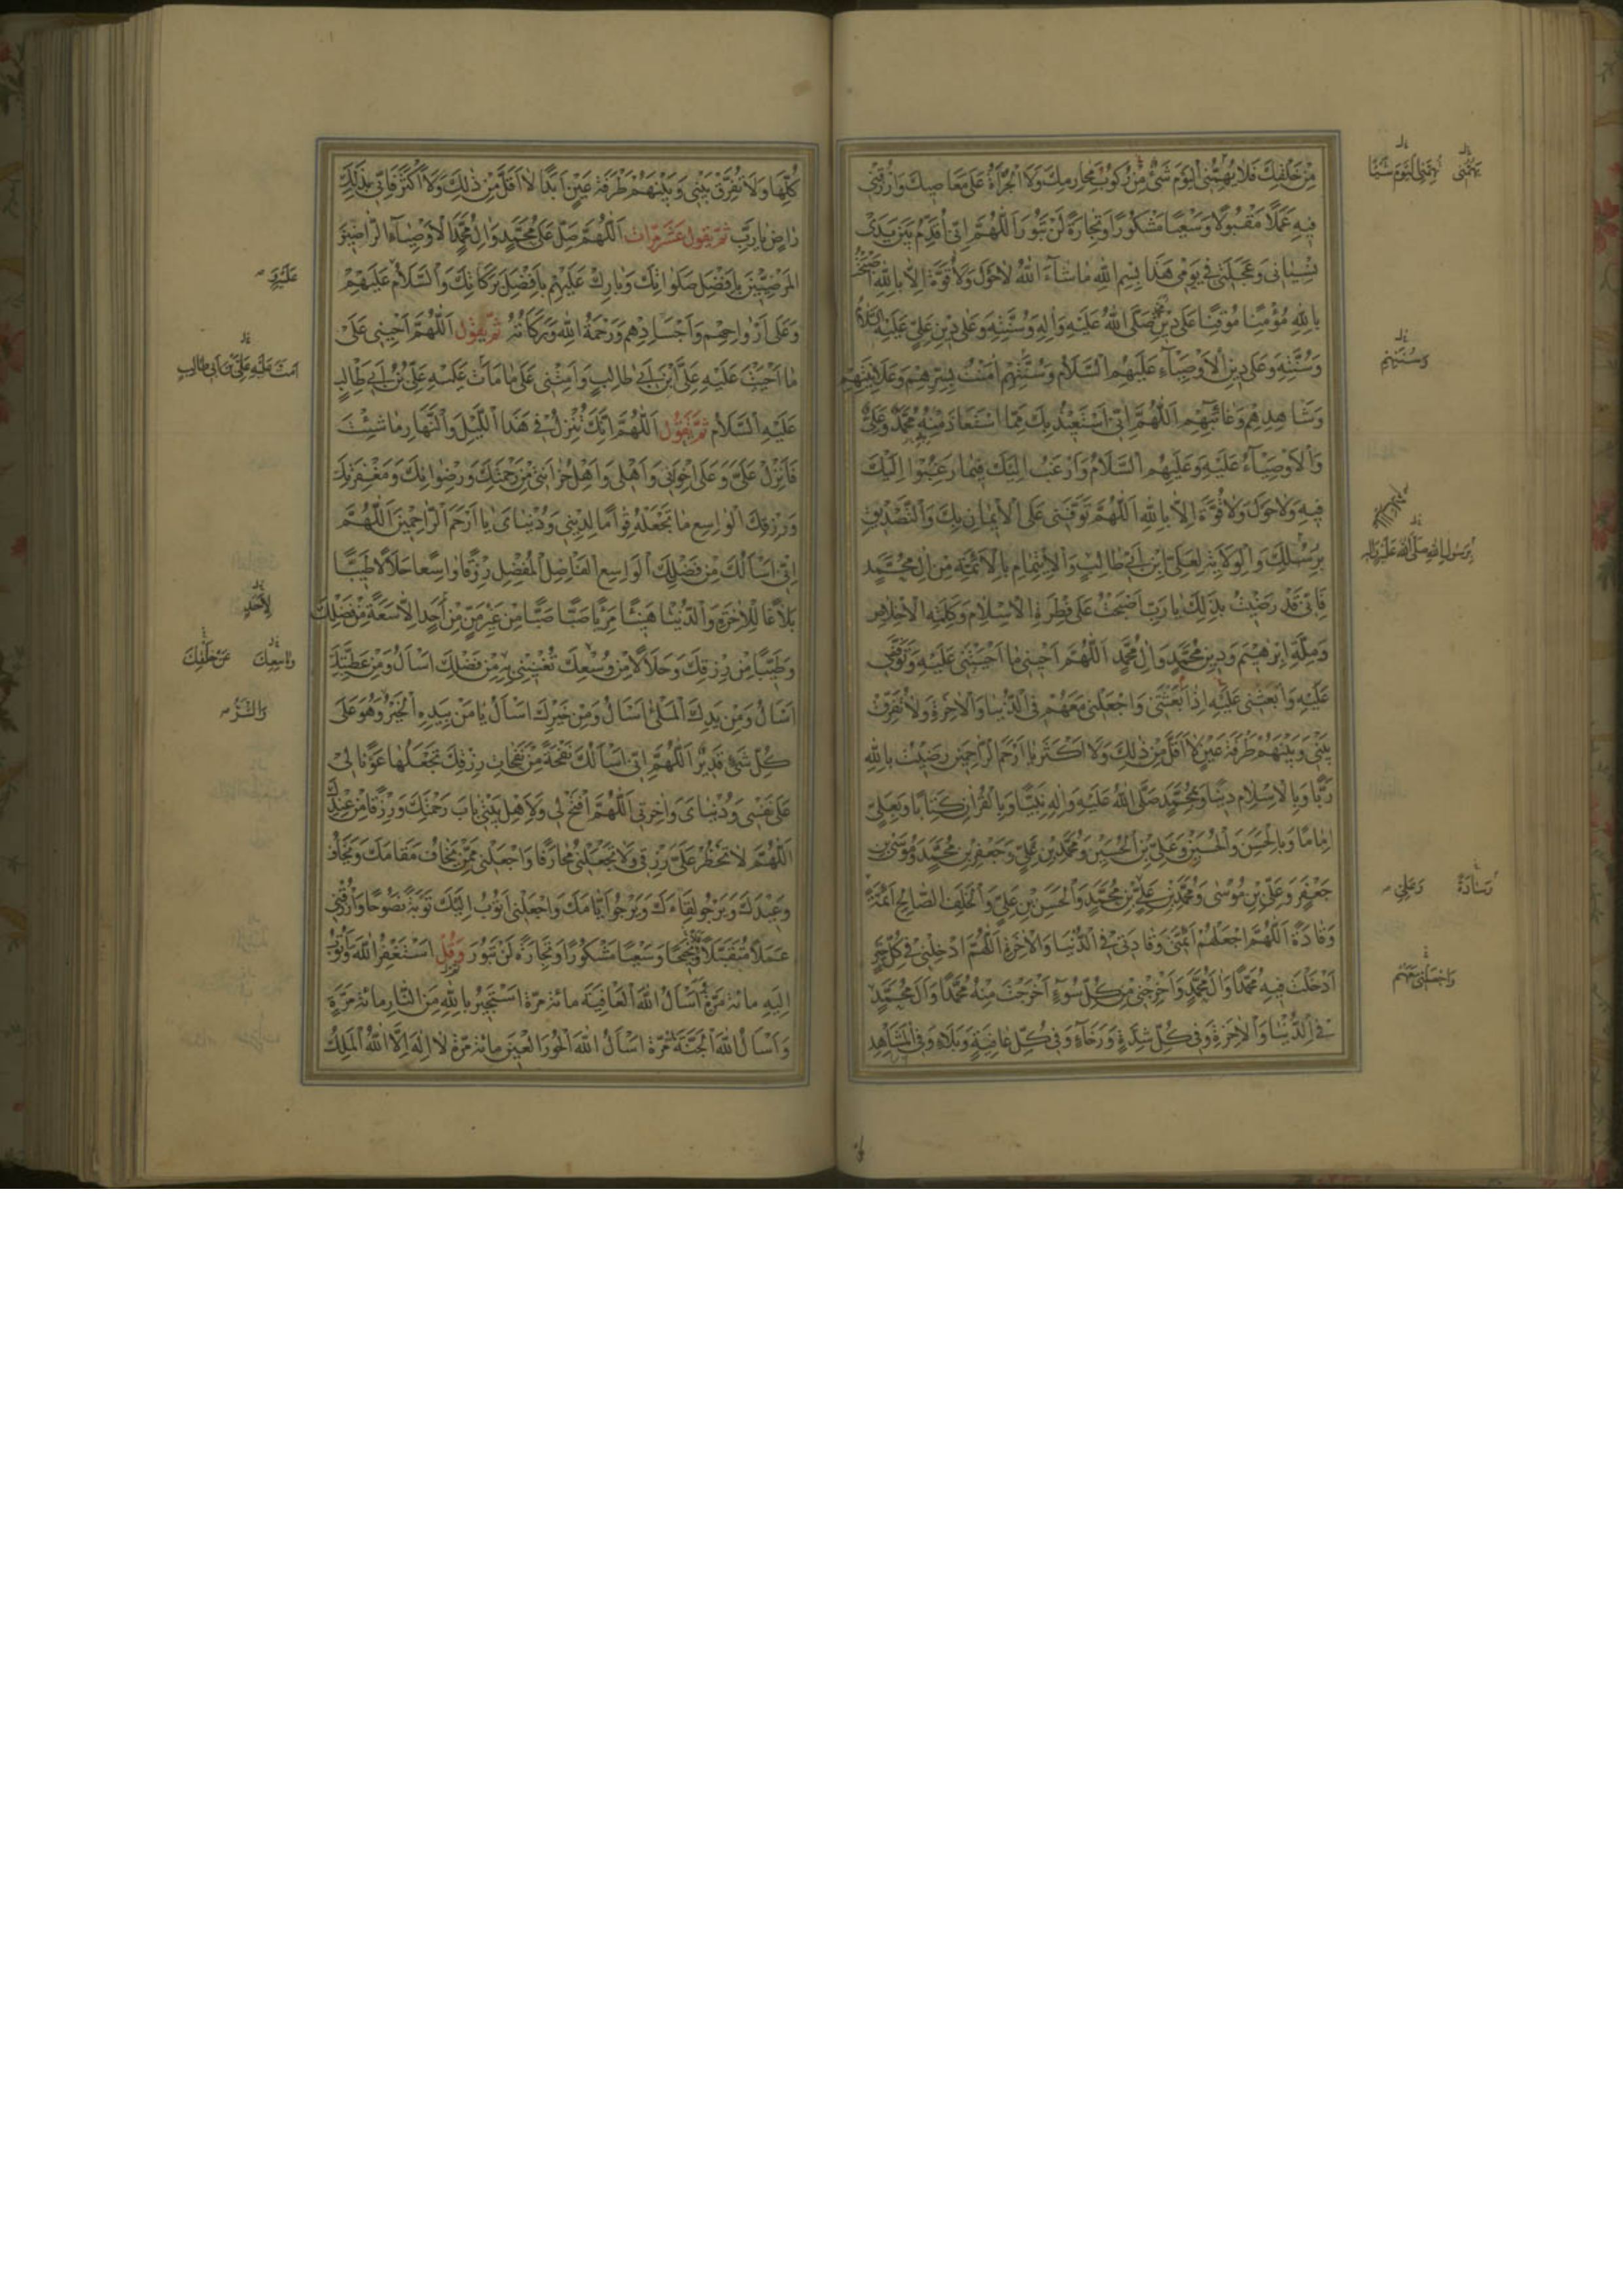 مِنْ خَلْفِكَ فَلَا يُهِمُّنِي الْيَوْمَ شَيْءٌ مِنْ رُكُوبِ مَحَارِمِكَ وَلَا الْجُرْأَةُ عَلَى مَعَاصِيكَ وَارْزُقْنِي
فِيهِ عَمَلًا مَقْبُولًا وَسَعْيًا مَشْكُورًا وَتِجَارَةً لَنْ تَبُورَ اَللّٰهُمَّ اِنِّي اُقَدِّمُ بَيْنَ يَدَيْ
نِسْيَانِي وَعَجَلَتِي فِي يَوْمِي هَذَا بِسْمِ اللهِ مَا شَاءَ اللهُ لَا حَوْلَ وَلَا قُوَّةَ اِلَّا بِاللهِ اَصْبَحْتُ
بِاللهِ مُؤْمِنًا مُوقِنًا عَلَى دِينِ مُحَمَّدٍ صَلَّى اللهُ عَلَيْهِ وَاٰلِهِ وَسُنَّتِهِ وَعَلَى دِينِ عَلِيٍّ عَلَيْهِ السَّلَامُ
وَسُنَّتِهِ وَعَلَى دِينِ الْاَوْصِيَاءِ عَلَيْهِمُ السَّلَامُ وَسُنَّتِهِمْ اٰمَنْتُ بِسِرِّهِمْ وَعَلَانِيَتِهِمْ
وَشَاهِدِهِمْ وَغَائِبِهِمْ اَللّٰهُمَّ اِنِّي اَسْتَعِيذُ بِكَ مِمَّا اسْتَعَاذَ مِنْهُ مُحَمَّدٌ وَعَلِيٌّ
وَالْاَوْصِيَاءُ عَلَيْهِ وَعَلَيْهِمُ السَّلَامُ وَاَرْغَبُ اِلَيْكَ فِيمَا رَغِبُوا اِلَيْكَ
فِيهِ وَلَا حَوْلَ وَلَا قُوَّةَ اِلَّا بِاللهِ اَللّٰهُمَّ تَوَفَّنِي عَلَى الْاِيمَانِ بِكَ وَالتَّصْدِيقِ
بِرُسُلِكَ وَالْوَلَايَةِ لِعَلِيِّ ابْنِ اَبِي طَالِبٍ وَالْاِيتِمَامِ بِالْاَئِمَّةِ مِنْ اٰلِ مُحَمَّدٍ
فَاِنِّي قَدْ رَضِيتُ بِذٰلِكَ يَا رَبِّ اَصْبَحْتُ عَلَى فِطْرَةِ الْاِسْلَامِ وَكَلِمَةِ الْاِخْلَاصِ
وَمِلَّةِ اِبْرٰهِيمَ وَدِينِ مُحَمَّدٍ وَاٰلِ مُحَمَّدٍ اَللّٰهُمَّ اَحْيِنِي مَا اَحْيَيْتَنِي عَلَيْهِ وَتَوَفَّنِي
عَلَيْهِ وَابْعَثْنِي عَلَيْهِ اِذَا بَعَثْتَنِي وَاجْعَلْنِي مَعَهُمْ فِي الدُّنْيَا وَالْاٰخِرَةِ وَلَا تُفَرِّقْ
بَيْنِي وَبَيْنَهُمْ طَرْفَةَ عَيْنٍ لَا اَقَلَّ مِنْ ذٰلِكَ وَلَا اَكْثَرَ يَا اَرْحَمَ الرَّاحِمِينَ رَضِيتُ بِاللهِ
رَبًّا وَبِالْاِسْلَامِ دِينًا وَبِمُحَمَّدٍ صَلَّى اللهُ عَلَيْهِ وَاٰلِهِ نَبِيًّا وَبِالْقُرْاٰنِ كِتَابًا وَبِعَلِيٍّ
اِمَامًا وَبِالْحَسَنِ وَالْحُسَيْنِ وَعَلِيِّ بْنِ الْحُسَيْنِ وَمُحَمَّدِ بْنِ عَلِيٍّ وَجَعْفَرِ بْنِ مُحَمَّدٍ وَمُوسَى بْنِ
جَعْفَرٍ وَعَلِيِّ بْنِ مُوسَى وَمُحَمَّدِ بْنِ عَلِيٍّ بْنِ مُحَمَّدٍ وَالْحَسَنِ بْنِ عَلِيٍّ وَالْخَلَفِ الصَّالِحِ اَئِمَّةً
وَقَادَةً اَللّٰهُمَّ اجْعَلْهُمْ اَئِمَّتِي وَقَادَتِي فِي الدُّنْيَا وَالْاٰخِرَةِ اَللّٰهُمَّ ادْخِلْنِي فِي كُلِّ خَيْرٍ
اَدْخَلْتَ فِيهِ مُحَمَّدًا وَاٰلَ مُحَمَّدٍ وَاَخْرِجْنِي مِنْ كُلِّ سُوءٍ اَخْرَجْتَ مِنْهُ مُحَمَّدًا وَاٰلَ مُحَمَّدٍ
فِي الدُّنْيَا وَالْاٰخِرَةِ وَفِي كُلِّ شِدَّةٍ وَرَخَاءٍ وَفِي كُلِّ عَافِيَةٍ وَبَلَاءٍ وَفِي الْمَشَاهِدِ
يُهِمُّنِي الْيَوْمَ شَيْئًا
وَسُنَّتِهِمْ
بِرَسُولِ اللهِ صَلَّى اللهُ عَلَيْهِ وَاٰلِهِ
وَسَادَةً وَعَلِيِّ
وَاجْعَلْنِي مَعَهُمْ
كُلِّهَا وَلَا تُفَرِّقْ بَيْنِي وَبَيْنَهُمْ طَرْفَةَ عَيْنٍ اَبَدًا لَا اَقَلَّ مِنْ ذٰلِكَ وَلَا اَكْثَرَ فَاِنِّي بِذٰلِكَ
رَاضٍ يَا رَبِّ ثُمَّ يَقُولُ عَشْرَ مَرَّاتٍ اَللّٰهُمَّ صَلِّ عَلَى مُحَمَّدٍ وَاٰلِ مُحَمَّدٍ الْاَوْصِيَاءِ الرَّاضِينَ
الْمَرْضِيِّينَ بِاَفْضَلِ صَلَوَاتِكَ وَبَارِكْ عَلَيْهِمْ بِاَفْضَلِ بَرَكَاتِكَ وَالسَّلَامُ عَلَيْهِمْ
وَعَلَى اَرْوَاحِهِمْ وَاَجْسَادِهِمْ وَرَحْمَةُ اللهِ وَبَرَكَاتُهُ ثُمَّ يَقُولُ اَللّٰهُمَّ اَحْيِنِي عَلَى
مَا اَحْيَيْتَ عَلَيْهِ عَلِيَّ ابْنَ اَبِي طَالِبٍ وَاَمِتْنِي عَلَى مَا مَاتَ عَلَيْهِ عَلِيُّ بْنُ اَبِي طَالِبٍ
عَلَيْهِ السَّلَامُ ثُمَّ يَقُولُ اَللّٰهُمَّ اِنَّكَ تُنْزِلُ فِي هَذَا اللَّيْلِ وَالنَّهَارِ مَا شِئْتَ
فَاَنْزِلْ عَلَيَّ وَعَلَى اِخْوَانِي وَاَهْلِي وَاَهْلِ حُزَانَتِي مِنْ رَحْمَتِكَ وَرِضْوَانِكَ وَمَغْفِرَتِكَ
وَرِزْقِكَ الْوَاسِعِ مَا تَجْعَلُهُ قِوَامًا لِدِينِي وَدُنْيَايَ يَا اَرْحَمَ الرَّاحِمِينَ اَللّٰهُمَّ
اِنِّي اَسْاَلُكَ مِنْ فَضْلِكَ الْوَاسِعِ الْفَاضِلِ الْمُفْضِلِ رِزْقًا وَاسِعًا حَلَالًا طَيِّبًا
بَلَاغًا لِلْاٰخِرَةِ وَالدُّنْيَا هَنِيئًا مَرِيئًا صَبًّا صَبًّا مِنْ غَيْرِ مَنٍّ مِنْ اَحَدٍ اِلَّا سَعَةً مِنْ فَضْلِكَ
وَطَيِّبًا مِنْ رِزْقِكَ وَحَلَالًا مِنْ وُسْعِكَ تُغْنِينِي بِهِ مِنْ فَضْلِكَ اَسْاَلُ وَمِنْ عَطِيَّتِكَ
اَسْاَلُ وَمِنْ يَدِكَ الْمَلْاَى اَسْاَلُ وَمِنْ خَيْرِكَ اَسْاَلُ يَا مَنْ بِيَدِهِ الْخَيْرُ وَهُوَ عَلَى
كُلِّ شَيْءٍ قَدِيرٌ اَللّٰهُمَّ اِنِّي اَسْاَلُكَ نَفْحَةً مِنْ نَفَحَاتِ رِزْقِكَ تَجْعَلُهَا عَوْنًا لِي
عَلَى نَفْسِي وَدُنْيَايَ وَاٰخِرَتِي اَللّٰهُمَّ افْتَحْ لِي وَلِاَهْلِ بَيْتِي بَابَ رَحْمَتِكَ وَرِزْقًا مِنْ عِنْدِكَ
اَللّٰهُمَّ لَا تَحْظُرْ عَلَيَّ رِزْقِي وَلَا تَجْعَلْنِي مُحَارَفًا وَاجْعَلْنِي مِمَّنْ يَخَافُ مَقَامَكَ وَيَخَافُ
وَعِيدَكَ وَيَرْجُو لِقَاءَكَ وَيَرْجُو اَيَّامَكَ وَاجْعَلْنِي اَتُوبُ اِلَيْكَ تَوْبَةً نَصُوحًا وَارْزُقْنِي
عَمَلًا مُتَقَبَّلًا نَجِيحًا وَسَعْيًا مَشْكُورًا وَتِجَارَةً لَنْ تَبُورَ وَقُلْ اَسْتَغْفِرُ اللهَ وَاَتُوبُ
اِلَيْهِ مِائَةَ مَرَّةٍ اَسْاَلُ اللهَ الْعَافِيَةَ مِائَةَ مَرَّةٍ اَسْتَجِيرُ بِاللهِ مِنَ النَّارِ مِائَةَ مَرَّةٍ
وَاَسْاَلُ اللهَ الْجَنَّةَ مِائَةَ مَرَّةٍ اَسْاَلُ اللهَ الْحُورَ الْعِينَ مِائَةَ مَرَّةٍ لَا اِلٰهَ اِلَّا اللهُ الْمَلِكُ
مَاتَ عَلَيْهِ عَلِيُّ بْنُ اَبِي طَالِبٍ
لِاَحَدٍ